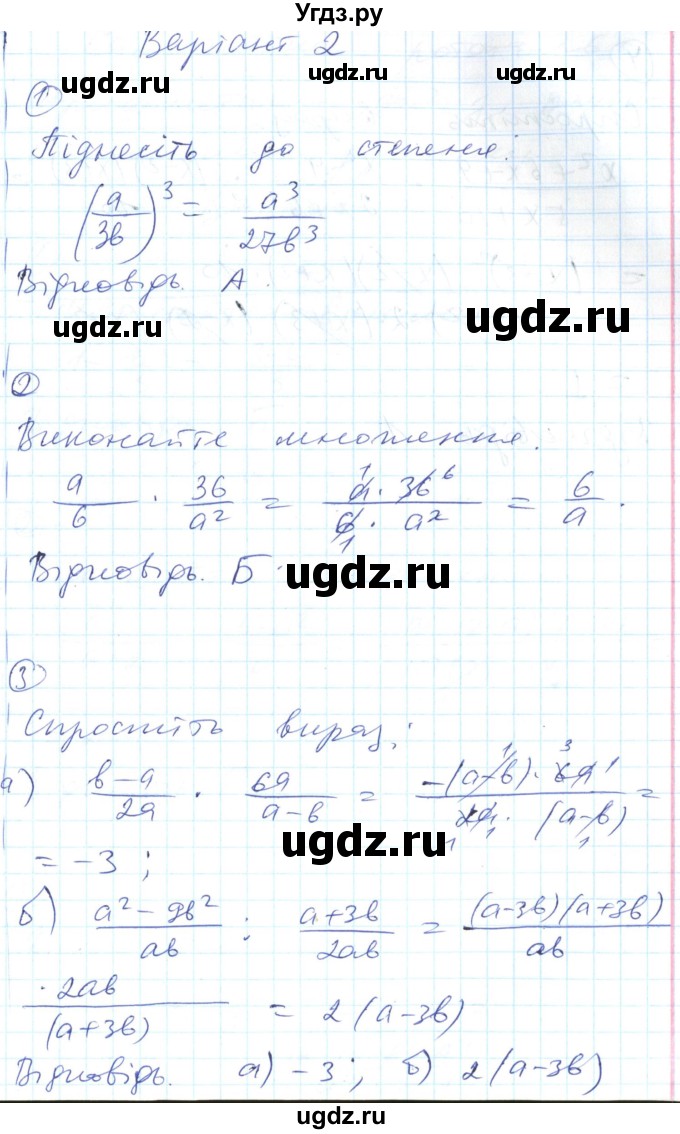 Угдз.ру
Варіант 2
ugdz.ru ugdz.ru
1
Піднесіть до степеня:
(a/3b)^3 = a^3/27b^3
Відповідь. А.
ugdz.ru ugdz.ru
2
Виконайте множення.
a/6 · 36/a^2 = a · 36/6 · a^2 = 6/a.
Відповідь. Б.
ugdz.ru
3
Спростіть вираз:
а) b-a/2a · 6a/a-b = -(a-b) · 6a/2a · (a-b) =
ugdz.ru
= -3;
б) a^2-9b^2/ab : a+3b/2ab = (a-3b)(a+3b)/ab
· 2ab/(a+3b) = 2(a-3b)
Відповідь. а) -3; б) 2(a-3b)
ugdz.ru